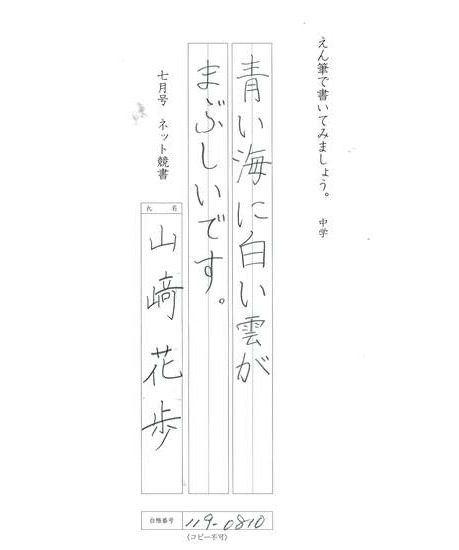 えん筆で書いてみましょう。 中学
青い海に白い雲が
まぶしいです。
七月号 ネット競書
氏名
山﨑花歩
台帳番号 119-0810
(コピー不可)